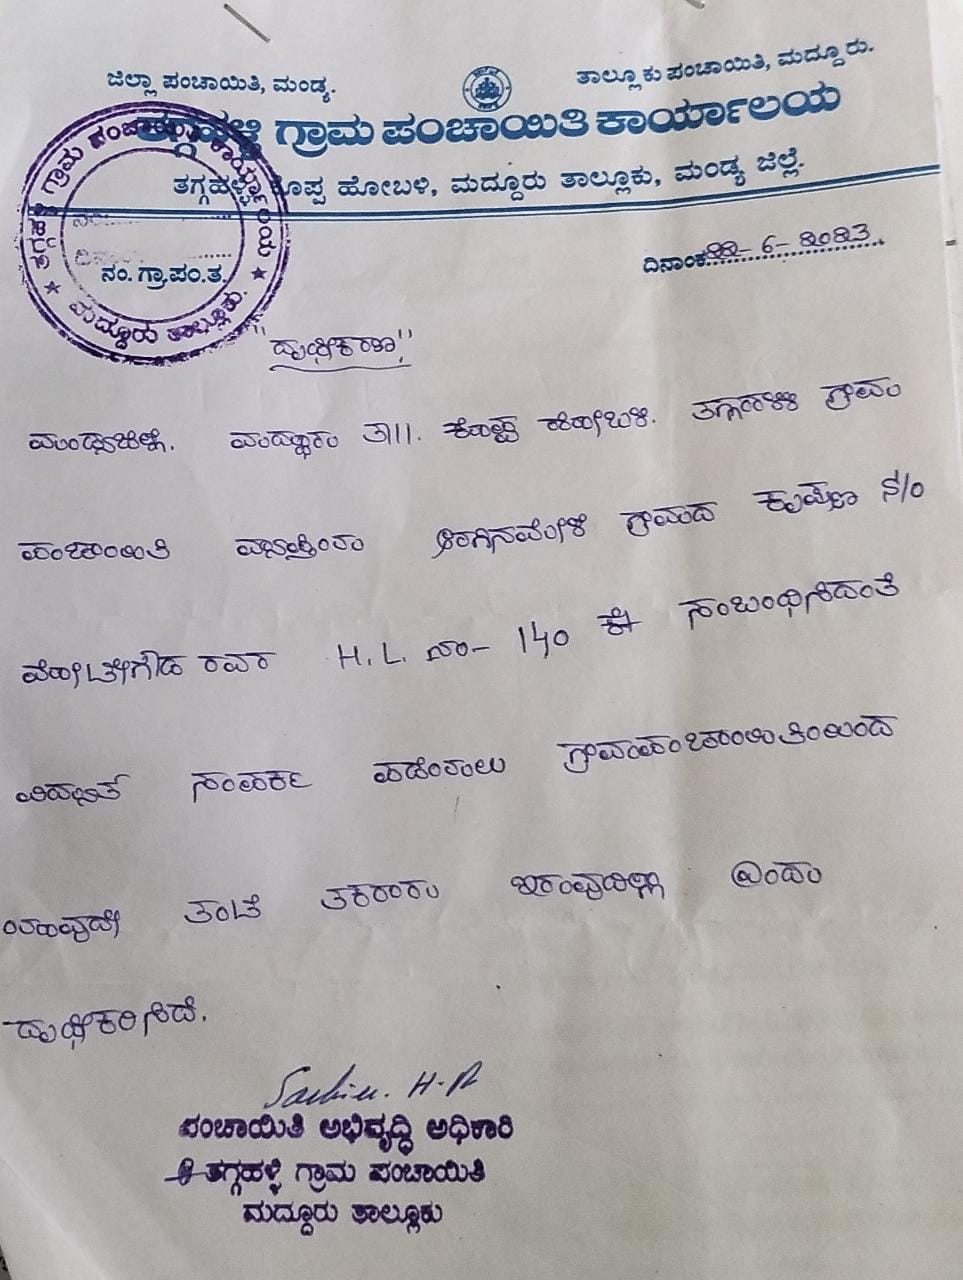 ಜಿಲ್ಲಾ ಪಂಚಾಯಿತಿ, ಮಂಡ್ಯ. ತಾಲ್ಲೂಕು ಪಂಚಾಯಿತಿ, ಮದ್ದೂರು.
ತಗ್ಗಹಳ್ಳಿ ಗ್ರಾಮ ಪಂಚಾಯಿತಿ ಕಾರ್ಯಾಲಯ
ತಗ್ಗಹಳ್ಳಿ, ಕೊಪ್ಪ ಹೋಬಳಿ, ಮದ್ದೂರು ತಾಲ್ಲೂಕು, ಮಂಡ್ಯ ಜಿಲ್ಲೆ.
ತಗ್ಗಹಳ್ಳಿ ಗ್ರಾಮ ಪಂಚಾಯಿತಿ ಕಾರ್ಯಾಲಯ
★ ಮದ್ದೂರು ತಾಲ್ಲೂಕು. ★
ನಂ.
ದಿನಾಂಕ
ನಂ. ಗ್ರಾ.ಪಂ.ತ.
ದಿನಾಂಕ 22-6-2023
"ದೃಢೀಕರಣ"
ಮಂಡ್ಯಜಿಲ್ಲೆ. ಮದ್ದೂರು ತಾ||. ಕೊಪ್ಪ ಹೋಬಳಿ. ತಗ್ಗಹಳ್ಳಿ ಗ್ರಾಮ
ಪಂಚಾಯಿತಿ ವ್ಯಾಪ್ತಿಯ ಗ್ರಾಮದ ಕೃಷ್ಣ S/O
ರವರ H.L. ನಂ- 140 ಕ್ಕೆ ಸಂಬಂಧಿಸಿದಂತೆ
ವಿದ್ಯುತ್ ಸಂಪರ್ಕ ಪಡೆಯಲು ಗ್ರಾಮಪಂಚಾಯಿತಿಯಿಂದ
ಯಾವುದೇ ತಂಟೆ ತಕರಾರು ಇರುವುದಿಲ್ಲಾ ಎಂದು
ದೃಢೀಕರಿಸಿದೆ.
ಪಂಚಾಯಿತಿ ಅಭಿವೃದ್ಧಿ ಅಧಿಕಾರಿ
ತಗ್ಗಹಳ್ಳಿ ಗ್ರಾಮ ಪಂಚಾಯಿತಿ
ಮದ್ದೂರು ತಾಲ್ಲೂಕು